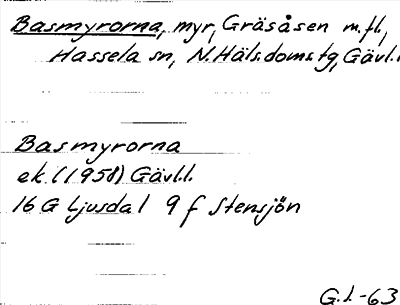 Basmyrorna, myr, Gräsåsen m.fl.,
Hassela sn, N.Häls.doms.tg, Gävl.l
Basmyrorna
ek. (1958) Gävl.l.
16 G Ljusdal 9 f Stensjön
G.J.-63